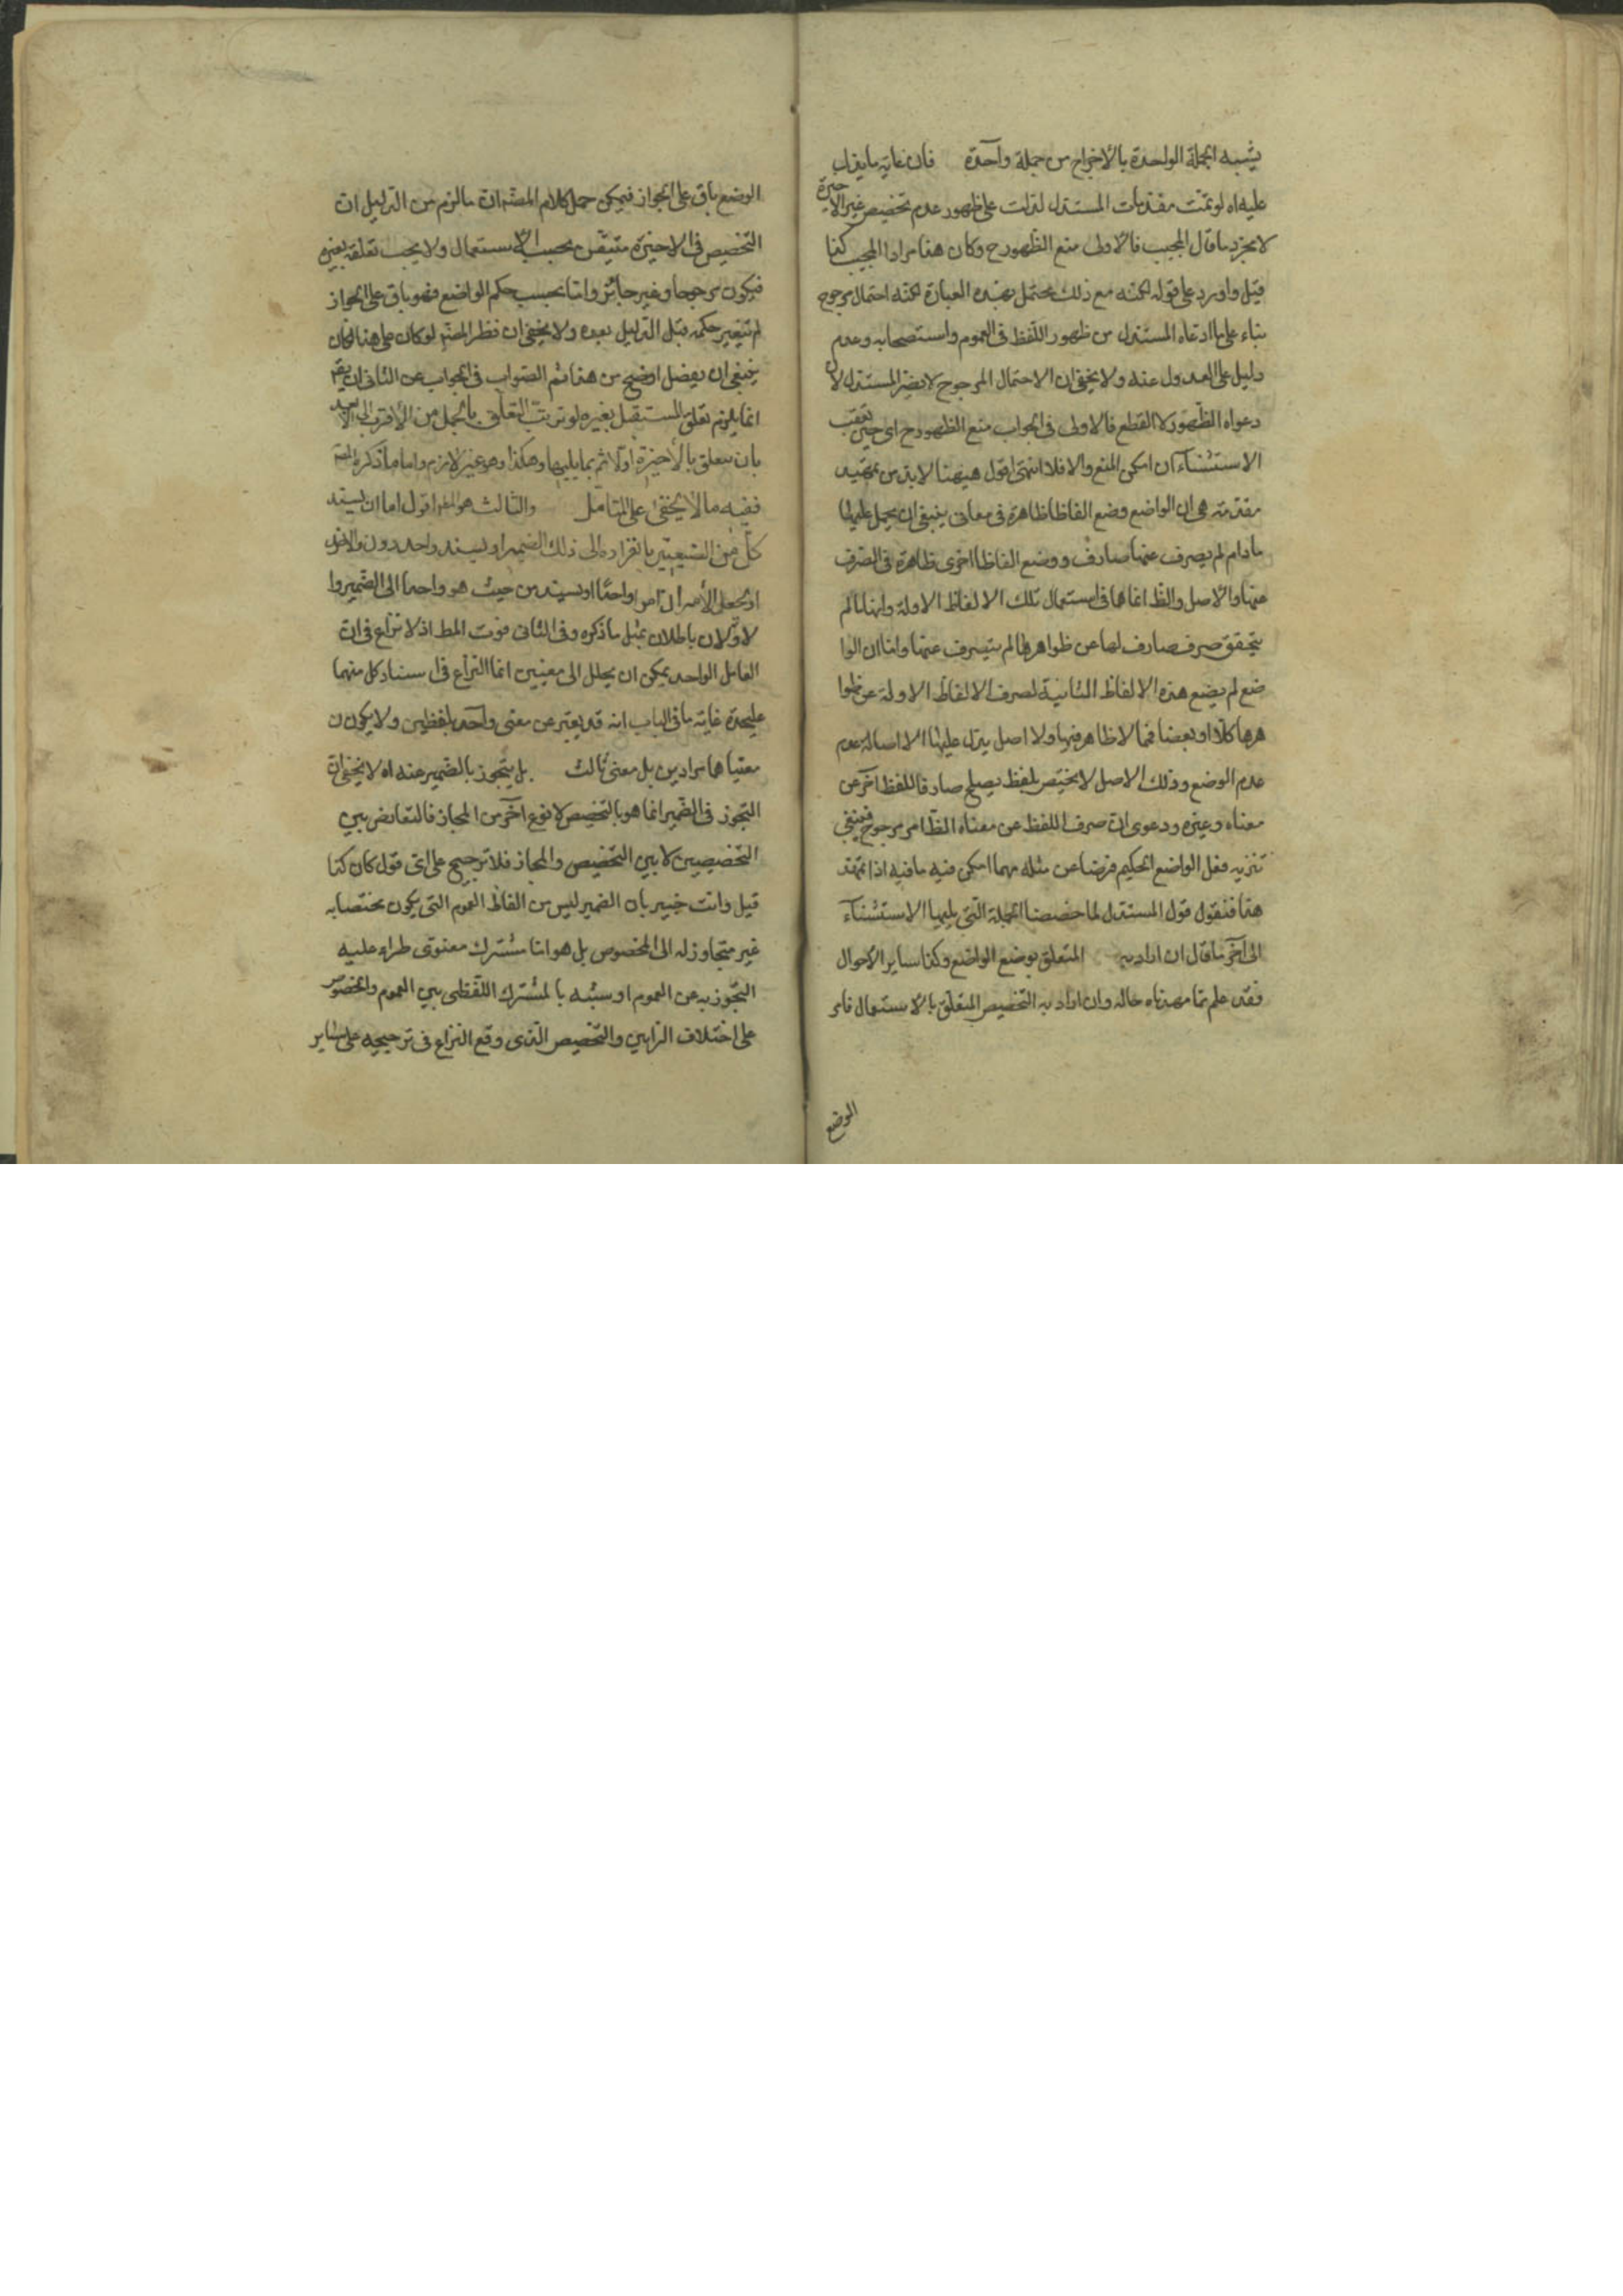 يشبه الجملة الواحدة بالاخراج من جملة واحدة فان غاية ما يقال
عليه اه لو تمت مقدمات المستدل لدلت على ظهور عدم تخصيص غير الاخيرة
لا مجرد ما قال المجيب فالاولى منع الظهور ح وكان هذا مراد المجيب كذا
قيل واورد على قوله لكنه مع ذلك محتمل بهذه العبارة لكنه احتمال مرجوح
بناء على ما ادعاه المستدل من ظهور اللفظ فى العموم واستصحابه وعدم
دليل على العدول عنه ولا يخفى ان الاحتمال المرجوح لا يضر المستدل لان
دعواه الظهور لا القطع فالاولى فى الجواب منع الظهور ح اى حين تعقب
الاستثناء ان امكن المنع والا فلا انتهى اقول هيهنا لا بد من تمهيد
مقدمة هى ان الواضع وضع الفاظا ظاهرة فى معانى ينبغى ان يحمل عليها
ما دام لم يصرف عنها صارف ووضع الفاظا اخرى ظاهرة فى الصرف
عنها والاصل والظ انما هما فى استعمال تلك الالفاظ الاولة وانها ما لم
يتحقق صرف صارف لها عن ظواهرها لم يتصرف عنها واما ان الوا
ضع لم يضع هذه الالفاظ الثانية لصرف الالفاظ الاولة عن ظوا
هرها كلا او بعضا فمما لا ظاهر فيها ولا اصل يدل عليها الا اصالة عدم
عدم الوضع وذلك الاصل لا يختص بلفظ يصلح صارفا للفظ آخر عن
معناه وغيره ودعوى ان صرف اللفظ عن معناه الظاهر مرجوح فينبغى
تنزيه فعل الواضع الحكيم فرضا عن مثله مهما امكن فيه ما فيه اذا تمهد
هذا فنقول قول المستدل لما خصصنا الجملة التى يليها الاستثناء
الى آخر ما قال ان اراد به المتعلق بوضع الواضع وكذا ساير الاحوال
فقد علم مما مهدناه حاله وان اراد به التخصيص المتعلق بالاستعمال فامر
الوضع
الوضع باق على الجواز فيمكن حمل كلام المصنف ان ما لزم من الدليل ان
التخصيص فى الاخيرة متيقن بحسب الاستعمال ولا يجب تعلقه بغيره
فيكون مرجوحا وغير جائز واما بحسب حكم الواضع فهو باق على الجواز
لم تتغير حكمه قبل الدليل بعده ولا يخفى ان نظر المصنف لو كان على هذا لكان
ينبغى ان يفصل اوضح من هذا ثم الصواب فى الجواب عن الثانى ان يقم
انما يلزم تعلق المستقبل بغيره لو ترتب التعلق بالجمل من الاقرب الى الابعد
بان يتعلق بالاخيرة اولا ثم بما يليها وهكذا وهو غير لازم واما ما ذكره المصنف
ففيه ما لا يخفى على المتامل والثالث هو اقول اما ان يسند
كل من الشيئين بانفراده الى ذلك الضمير او يسند واحد دون والآخر
او يجعل الامران امرا واحدا او تسند من حيث هو واحدا الى الضمير وا
لاولان باطلان بمثل ما ذكره وفى الثانى فوت المط اذ لا نزاع فى ان
العامل الواحد يمكن ان يحلل الى معنيين انما النزاع فى اسناد كل منهما
عليحدة غاية ما فى الباب انه قد يعتبر عن معنى واحد بلفظين ولا يكون ن
معنيا هما مرادين بل معنى ثالث بل يتجوز بالضمير عنه اه لا يخفى ان
التجوز فى الضمير انما هو بالتخصيص لا نوع آخر من المجاز فالتعارض بين
التخصيصين لا بين التخصيص والمجاز فلا ترجيح على اى قول كان كذا
قيل وانت خبير بان الضمير ليس من الفاظ العموم التى يكون مختصا به
غير متجاوز له الى الخصوص بل هو اما مشترك معنوى طراء عليه
التجوز به عن العموم او شبه بالمشترك اللفظى بين العموم والخصوص
على اختلاف الرايين والتخصيص الذى وقع النزاع فى ترجيحه على ساير